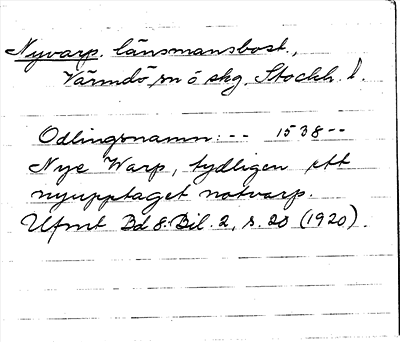 Nyvarp. länsmansbost.,
Värmdö sn o skg. Stockh. l.
Odlingsnamn: -- 1538 --
Nye Warp, tydligen ett
nyupptaget notvarp.
Ufmt Bd 8. Bil. 2, s. 20 (1920).